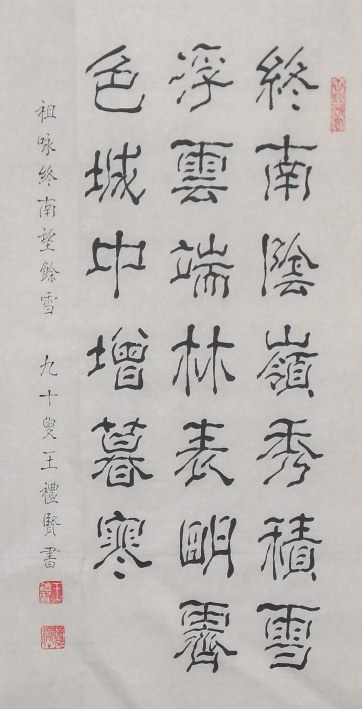 終南陰嶺秀積雪
浮雲端林表明霽
色城中增暮寒
祖咏終南望餘雪 九十叟王禮賢書